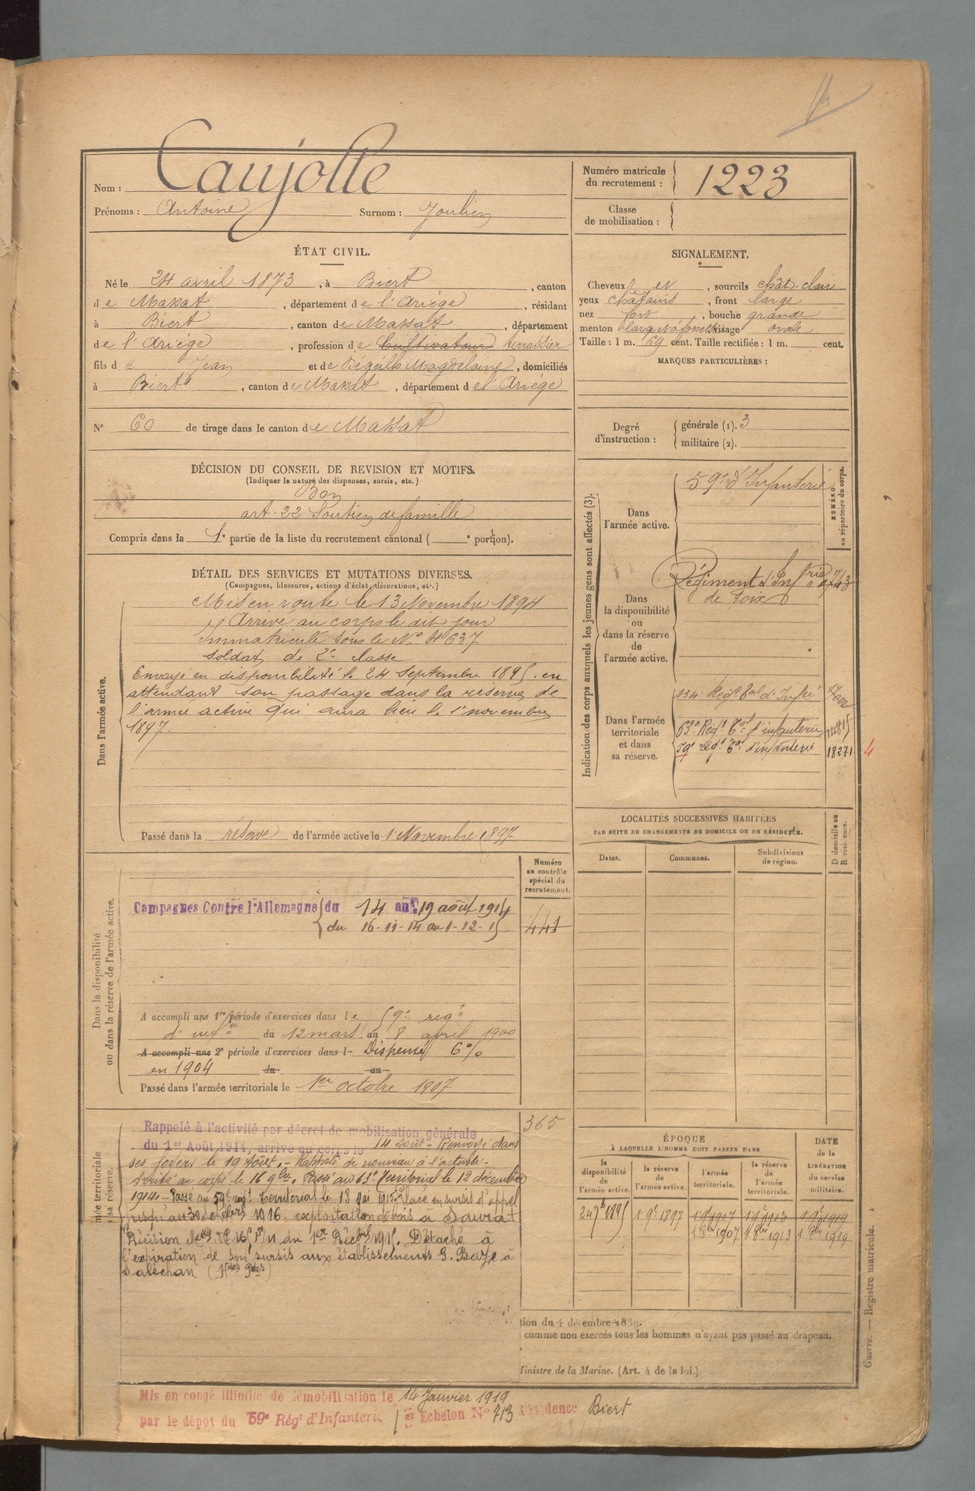 Nom : Caujolle
Prénoms : Antoine Surnom : Joulien
Numéro matricule du recrutement : 1223
Classe de mobilisation :
ÉTAT CIVIL.
Né le 24 avril 1873, à Biert, canton
de Massat, département de l'Ariége, résidant
à Biert, canton de Massat, département
de l'Ariége, profession de Cultivateur terrassier
fils de Jean et de Magdelaine, domiciliés
à Biert, canton de Massat, département de l'Ariége
N° 60 de tirage dans le canton de Massat
SIGNALEMENT.
Cheveux et, sourcils chât. clair
yeux châtains, front large
nez fort, bouche grande
menton visage ovale
Taille : 1 m. 69 cent. Taille rectifiée : 1 m. cent.
MARQUES PARTICULIÈRES :
Degré d'instruction :
générale (1). 3
militaire (2).
DÉCISION DU CONSEIL DE REVISION ET MOTIFS.
(Indiquer la nature des dispenses, sursis, etc.)
Bon
art. 22 Soutien de famille
Compris dans la 1e partie de la liste du recrutement cantonal ( e portion).
DÉTAIL DES SERVICES ET MUTATIONS DIVERSES.
(Campagnes, blessures, actions d'éclat, décorations, etc.)
Dans l'armée active.
Mis en route le 13 Novembre 1894
Arrivé au corps le dit jour
Immatriculé sous le N° 4637
soldat de 2e classe
Envoyé en disponibilité le 24 Septembre 1895 en
attendant son passage dans la réserve de
l'armée active qui aura lieu le 1er novembre
1897.
Passé dans la réserve de l'armée active le 1 Novembre 1897
Indication des corps auxquels les jeunes gens sont affectés (3).
NUMÉRO au répertoire du corps.
Dans l'armée active.
59e d'Infanterie
Dans la disponibilité ou dans la réserve de l'armée active.
Régiment d'Infrie
de Foix
Dans l'armée territoriale et dans sa réserve.
134e Régt tal d'Infie
63e Régt Tal d'infanterie
59e régt Tal d'infanterie 18271
4
LOCALITÉS SUCCESSIVES HABITÉES
PAR SUITE DE CHANGEMENTS DE DOMICILE OU DE RÉSIDENCE.
Dates. Communes. Subdivisions de région. D domicile ou R résidence.
Dans la disponibilité ou dans la réserve de l'armée active.
Numéro au contrôle spécial du recrutement.
Campagnes Contre l'Allemagne du 14 au 19 août 1914
du 16-11-14 au 1-12-15
441
A accompli une 1re période d'exercices dans le 59e regt
d'infie du 12 mars au 8 avril 1900
A accompli une 2e période d'exercices dans l- Dispensé 6%
en 1904 du au
Passé dans l'armée territoriale le 1er octobre 1907
365
Rappelé à l'activité par décret de mobilisation générale
du 1er Août 1914, arrivé au corps le 14 août - Renvoyé dans
ses foyers le 19 Août. - Rappelé de nouveau à l'activité -
Arrivé au corps le 16 9bre. Passé au 63e Territorial le 12 décembre
1914 - Passé au 59e régt Territorial le 13 Placé en sursis d'appel
jusqu'au 1916, exploitation de bois à Saurat
Décision Détaché à
l'expiration de son sursis aux établissements G. Baze à
Saléchan
ÉPOQUE
À LAQUELLE L'HOMME DOIT PASSER DANS
la disponibilité de l'armée active. la réserve de l'armée active. l'armée territoriale. la réserve de l'armée territoriale.
DATE de la LIBÉRATION du service militaire.
24 7bre 1895 1 9e 1897 1 9e 1907 1 9e 1913 1 9e 1919
1 8bre 1907 1 8bre 1913 1 8bre 1919
tion du 4 décembre 1889.
comme non exercés tous les hommes n'ayant pas passé au drapeau.
Ministre de la Marine. (Art. 4 de la loi.)
Guerre. — Registre matricule. 1
Mis en congé illimité de démobilisation le 14 Janvier 1919
par le dépôt du 59e Régt d'Infanterie Echelon N° 713 Résidence Biert